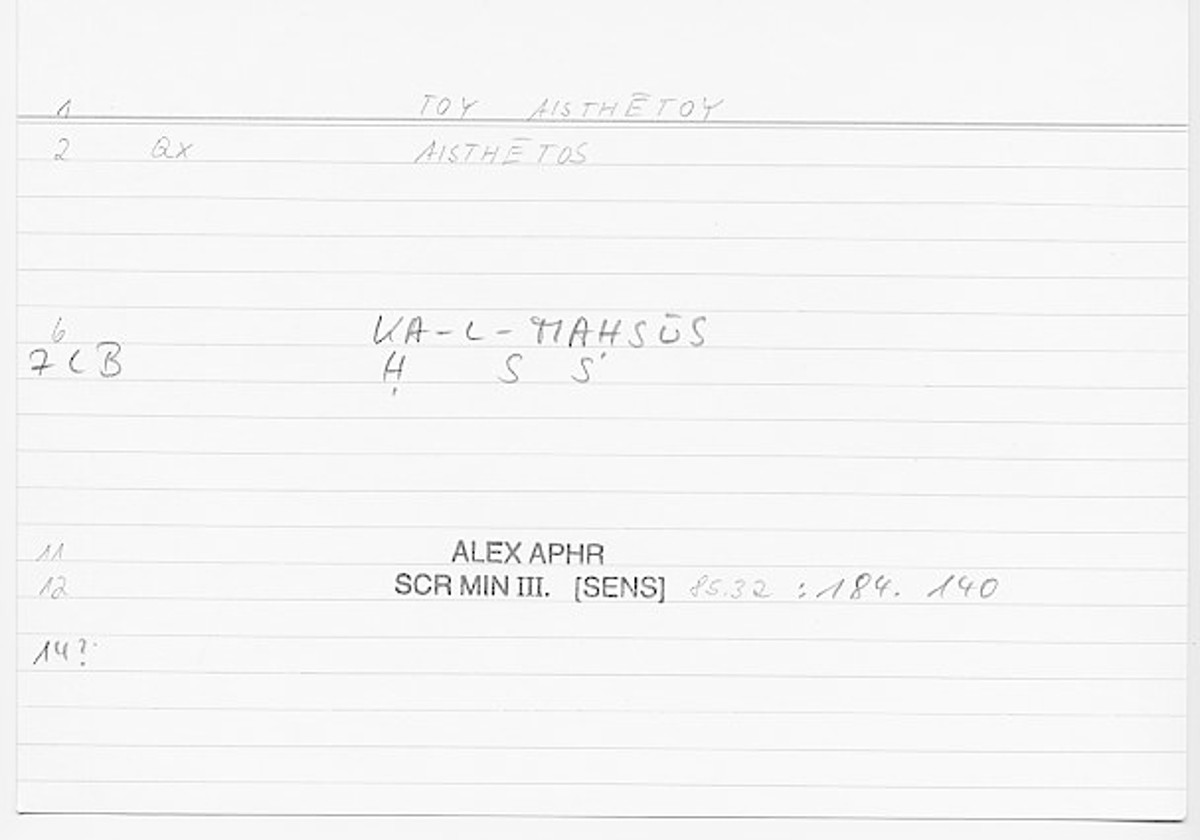 1 TOY AISTHĒTOY
2 QX AISTHĒTOS
6 KA-L-MAHSŪS
7 CB Ḥ S S
11 ALEX APHR
12 SCR MIN III. [SENS] 85.32 : 184. 140
14?